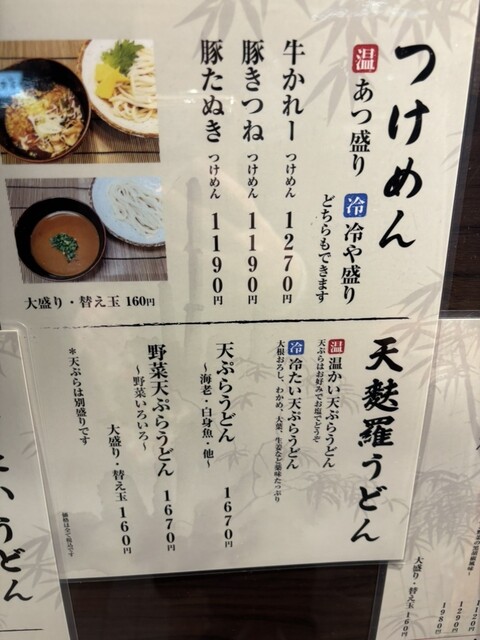 つけめん
温 あつ盛り 冷 冷や盛り
どちらもできます
牛かれー つけめん 1270円
豚きつね つけめん 1190円
豚たぬき つけめん 1190円
大盛り・替え玉 160円
天麩羅うどん
温 温かい天ぷらうどん
天ぷらはお好みでお塩でどうぞ
冷 冷たい天ぷらうどん
大根おろし、わかめ、大葉、生姜など薬味たっぷり
天ぷらうどん 1670円
〜海老・白身魚・他〜
野菜天ぷらうどん 1670円
〜野菜いろいろ〜
大盛り・替え玉 160円
*天ぷらは別盛りです
うどん
1120
1290円
1980円
大盛り・替え玉 160円